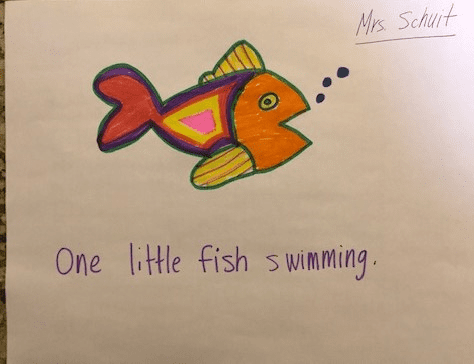 Mrs. Schuit
One little fish swimming.